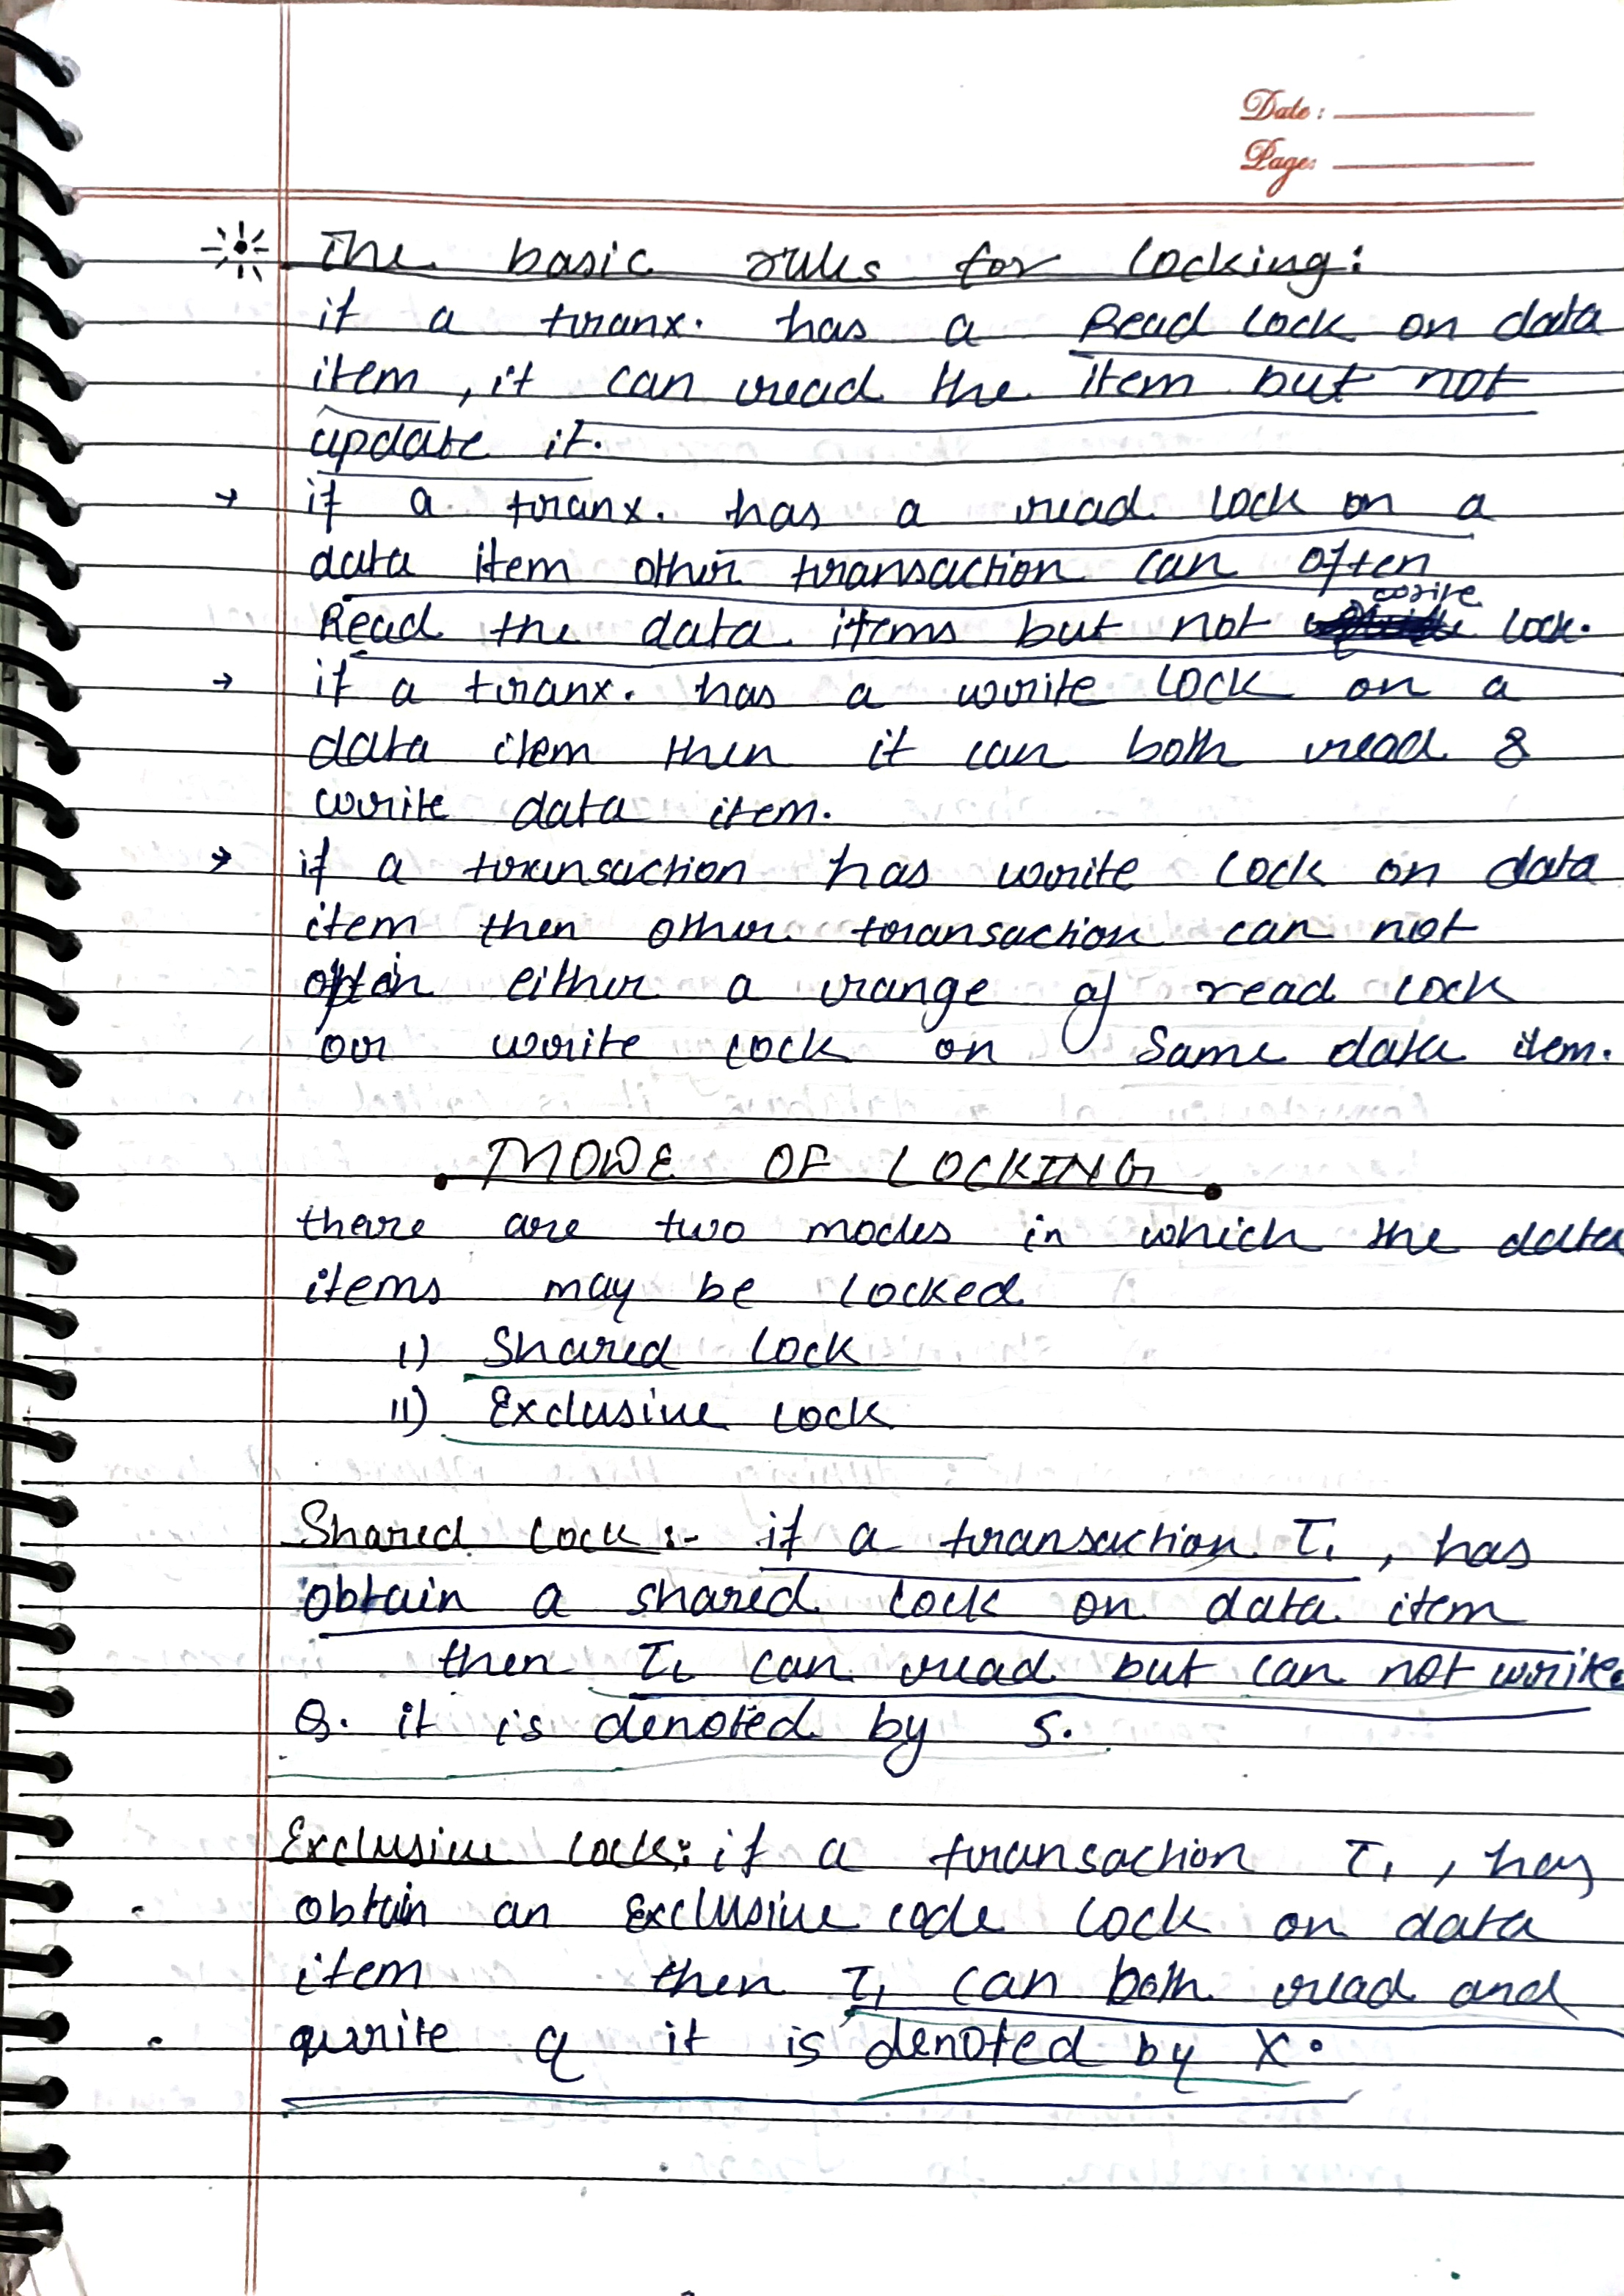 Date:
Page:
The basic rules for locking:
if a tranx. has a Read lock on data
item, it can read the item but not
update it.
→ if a tranx. has a read lock on a
data item other transaction can often
Read the data items but not write lock.
→ if a tranx. has a write lock on a
data item then it can both read &
write data item.
→ if a transaction has write lock on data
item then other transaction can not
either a range of read lock
or write lock on same data item.
MODE OF LOCKING
there are two modes in which the data
items may be locked
I) Shared lock
II) Exclusive lock
Shared lock:- if a transaction T1, has
obtain a shared lock on data item
then T1 can read but can not write
Q. it is denoted by S.
Exclusive lock: if a transaction T1, has
obtain an Exclusive code lock on data
item then T1 can both read and
qwrite q it is denoted by X.